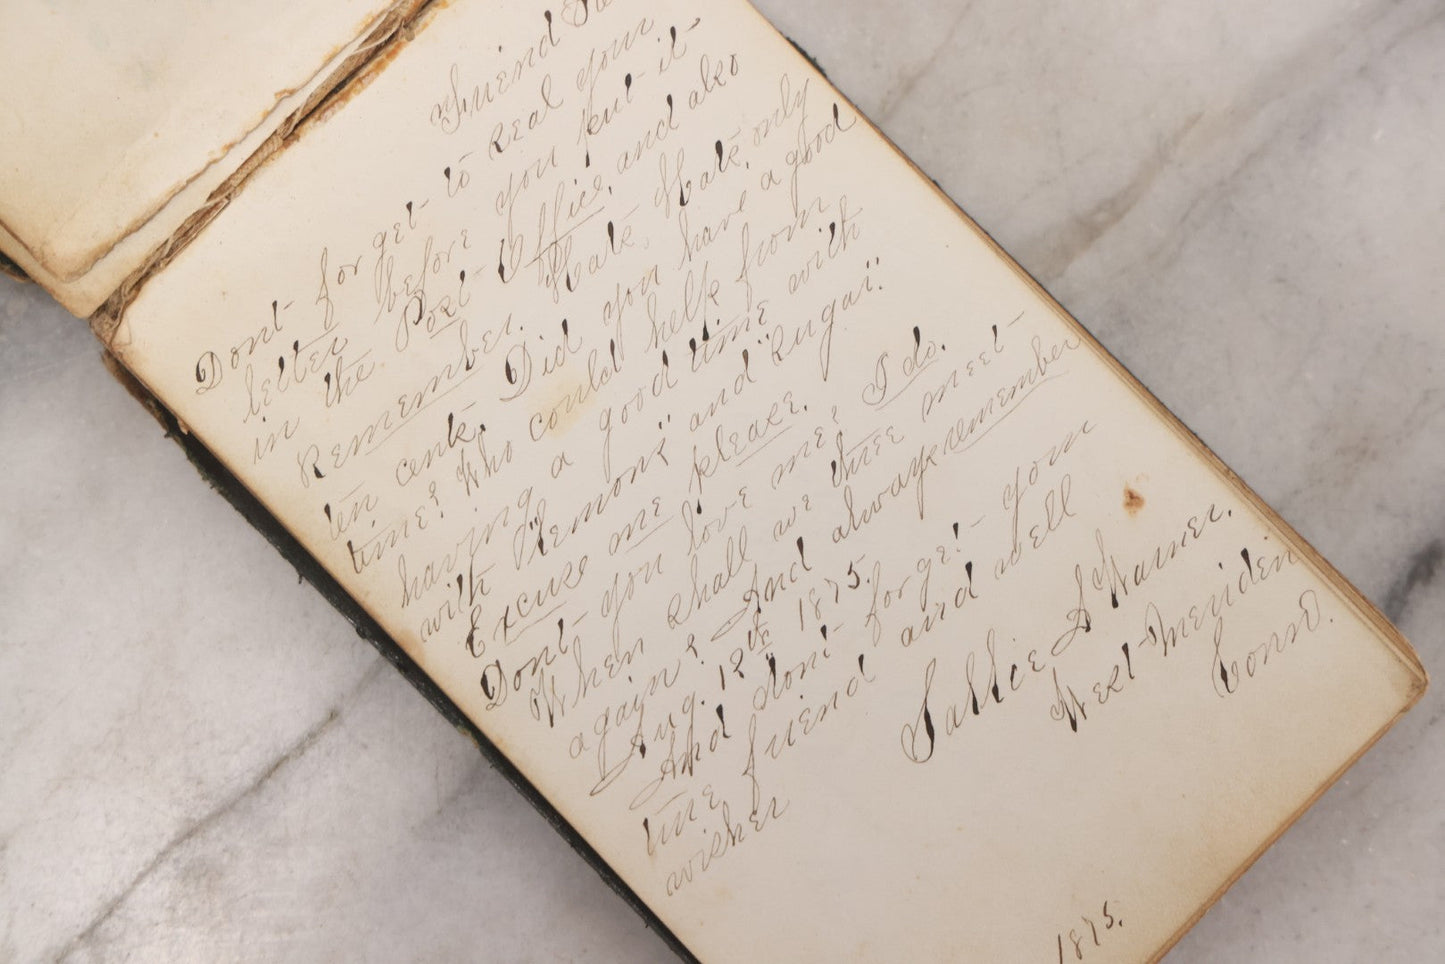 Friend
Dont forget to seal your
letter before you put it
in the Post Office, and also
Remember. State, State, only
ten cents. Did you have a good
time? Who could help from
having a good time with
with "Lemons" and "sugar".
Excuse me please.
Dont you love me? I do.
When shall we three meet
again? And always remember
Aug. 12th 1875.
And dont forget you
true friend and well
wisher
Sallie S Warner.
West-Meriden
Conn.
1875.